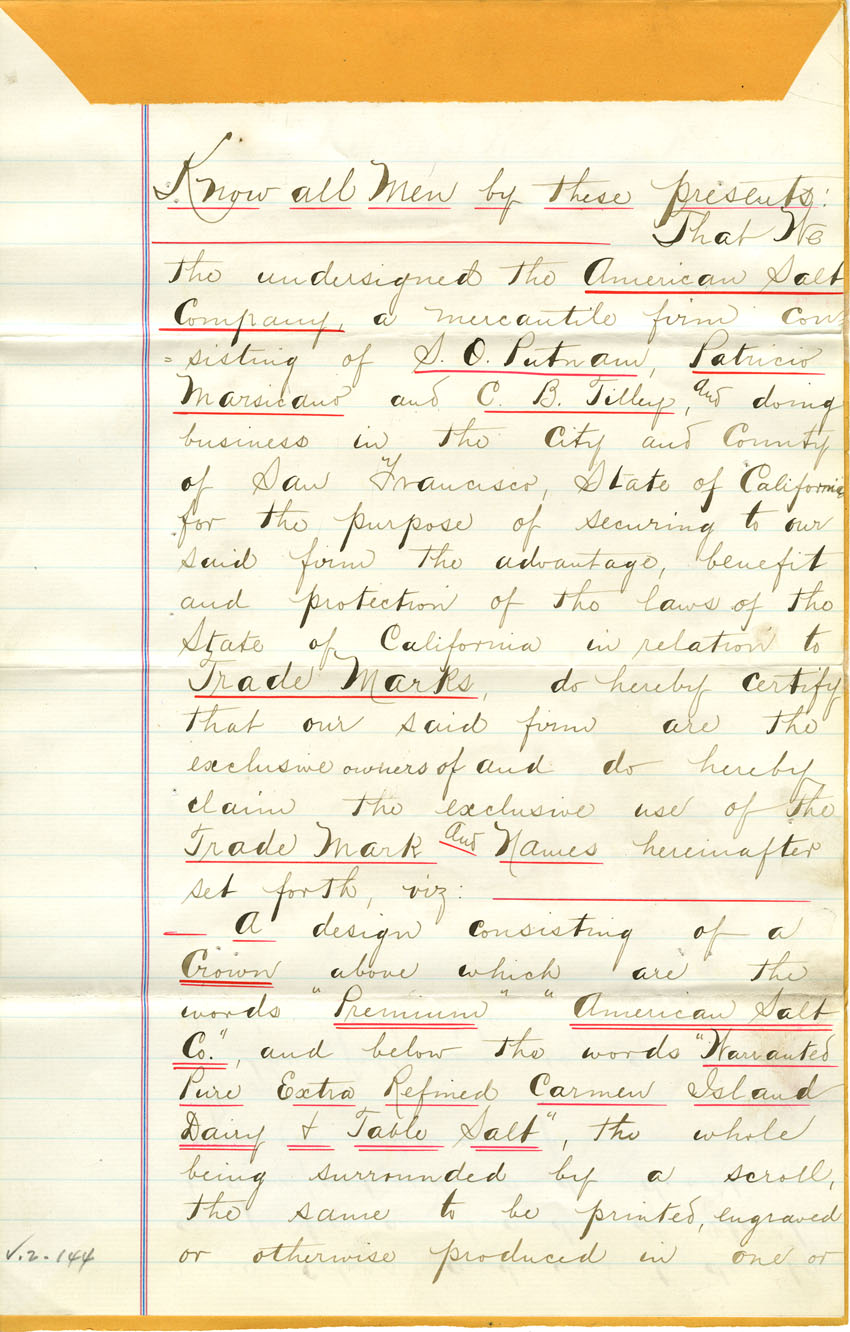 Know all Men by these presents:
That We
the undersigned the American Salt
Company, a mercantile firm con=
=sisting of S. O. Putnam, Patricio
Marsicano and C. B. Tilley, and doing
business in the City and County
of San Francisco, State of California
for the purpose of securing to our
said firm the advantage, benefit
and protection of the laws of the
State of California in relation to
Trade Marks, do hereby certify
that our said firm are the
exclusive owners of and do hereby
claim the exclusive use of the
Trade Mark and Names hereinafter
set forth, viz:
A design consisting of a
Crown above which are the
words "Premium" "American Salt
Co.", and below the words "Warranted
Pure Extra Refined Carmen Island
Dairy & Table Salt", the whole
being surrounded by a scroll,
the same to be printed, engraved
or otherwise produced in one or
V.2-144